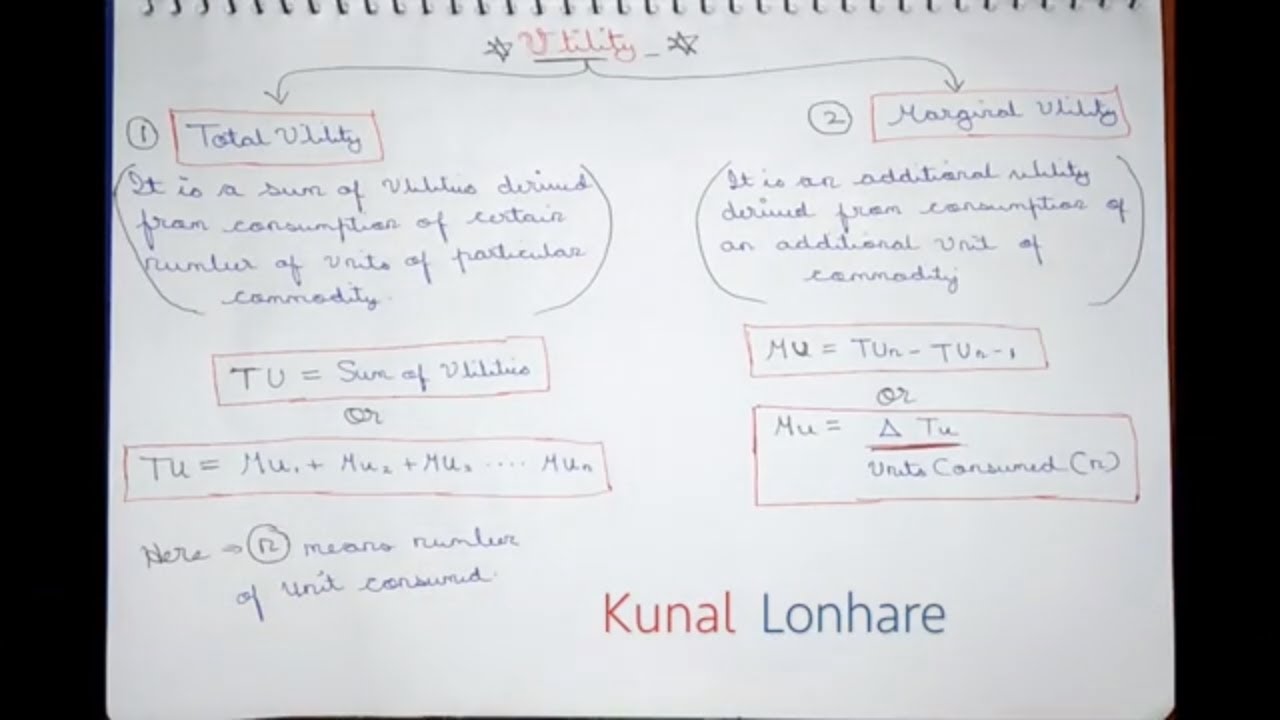 ☆ Utility - ☆
① Total Utility
It is a sum of Utilities derived
from consumption of certain
number of units of particular
commodity.
TU = Sum of Utilities
or
TU = Mu₁ + Mu₂ + Mu₃ .... Mun
Here → ⓝ means number
of unit consumed.
② Marginal Utility
It is an additional utility
derived from consumption of
an additional unit of
commodity
MU = TUn - TUn-1
or
Mu = Δ Tu
Units Consumed (n)
Kunal Lonhare